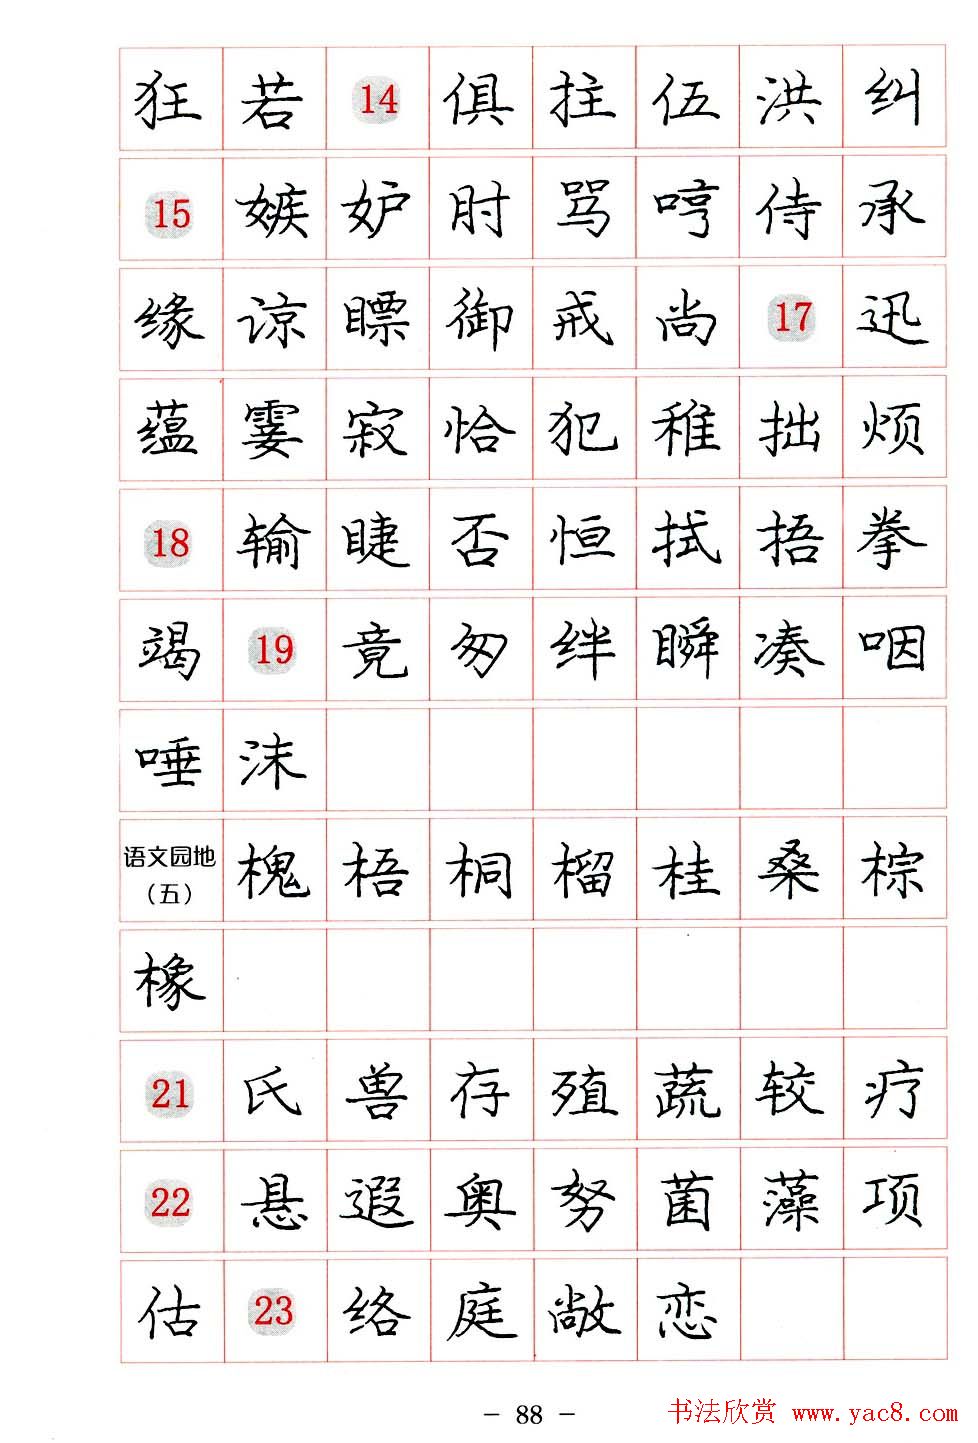 狂 若 14 俱 拄 伍 洪 纠
15 嫉 妒 肘 骂 哼 侍 承
缘 谅 瞟 御 戒 尚 17 迅
蕴 霎 寂 恰 犯 稚 拙 烦
18 输 睫 否 恒 拭 捂 拳
竭 19 竟 匆 绊 瞬 凑 咽
唾 沫
语文园地（五） 槐 梧 桐 榴 桂 桑 棕
橡
21 氏 兽 存 殖 蔬 较 疗
22 悬 遐 奥 努 菌 藻 项
估 23 络 庭 敞 恋
- 88 -
书法欣赏 www.yac8.com